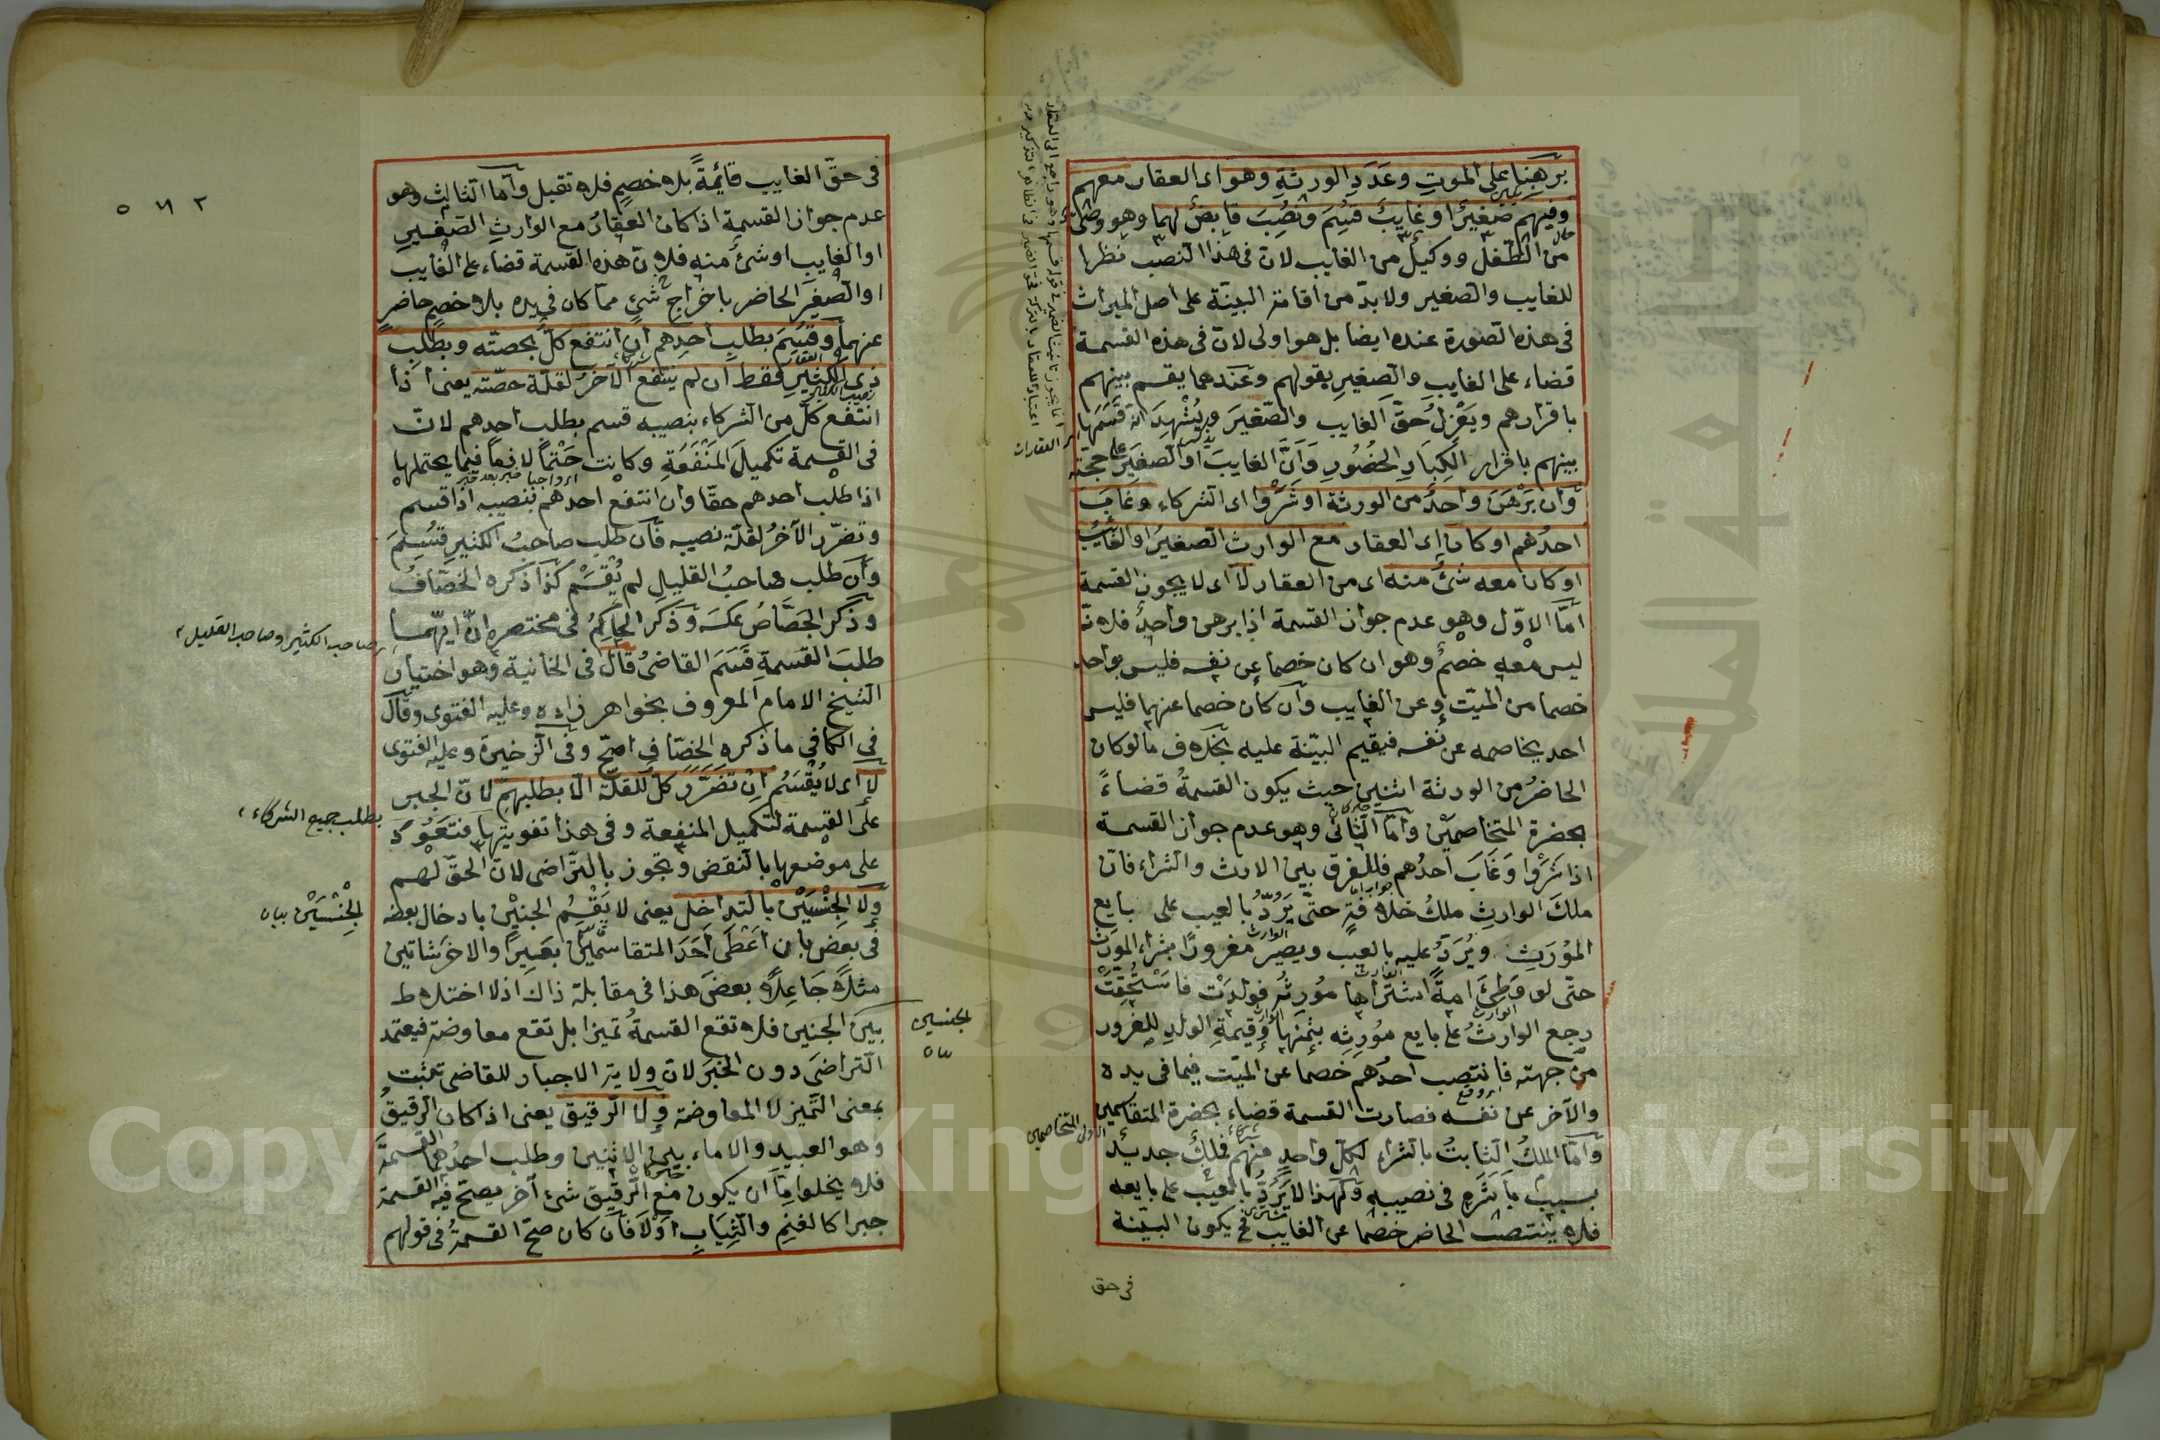 برهنا على الموت وعدد الورثة وهو اى العقار معهم
وفيهم صغير او غايب قسم ونصب قابض لهما وهو وصى
عن الطفل ووكيل من الغايب لان فى هذا النصب نظرا
للغايب والصغير ولا بد من اقامة البينة على اصل الميراث
فى هذه الصورة عنده ايضا بل هو اولى لان فى هذه القسمة
قضاء على الغايب والصغير بقولهم وعندهما يقسم بينهم
باقرارهم ويعزل حق الغايب والصغير ويشهد انه قسمها
بينهم باقرار الكبار الحضور وان الغايب او الصغير على حجته
وان برهن واحد من الورثة او شروا اى الشركاء وغاب
احدهم او كان اى العقار مع الوارث الصغير او الغايب
او كان معه شئ منه اى من العقار لا اى لا يجوز القسمة
اما الاول وهو عدم جواز القسمة اذا برهن واحد فلانه
ليس معه خصم وهو ان كان خصما عن نفسه فليس بواحد
خصما من الميت وعن الغايب وان كان خصما عنهما فليس
احد يخاصمه عن نفسه فيقيم البينة عليه بخلاف ما لو كان
الحاضر من الورثة اثنين حيث يكون القسمة قضاء
بحضرة المتخاصمين واما الثانى وهو عدم جواز القسمة
اذا شروا وغاب احدهم فللفرق بين الارث والشراء فان
ملك الوارث ملك خلافة حتى يرد بالعيب على بايع
المورث ويرد عليه بالعيب ويصير مغرورا بشراء المورث
حتى لو وطئ امة اشتراها مورثه فولدت فاستحقت
رجع الوارث على بايع مورثه بثمنها وقيمة الولد للغرور
من جهته فانتصب احدهم خصما عن الميت فيما فى يده
والآخر عن نفسه فصارت القسمة قضاء بحضرة المتقاسمين
واما الملك الثابت بالشراء لكل واحد منهم فملك جديد
بسبب باشره فى نصيبه ولهذا لا يرد بالعيب على بايعه
فلا ينتصب الحاضر خصما عن الغايب فح يكون البينة
فى حق
العقارات
المتخاصمين
٥٨٢
فى حق الغايب قايمة بلا خصم فلا تقبل واما الثالث وهو
عدم جواز القسمة اذا كان العقار مع الوارث الصغير
او الغايب او شئ منه فلان هذه القسمة قضاء على الغايب
او الصغير الحاضر باخراج شئ مما كان فى يده بلا خصم حاضر
عنهما وقسم بطلب احدهم ان انتفع كل بحصته وبطلب
ذى الكثير فقط ان لم ينتفع الآخر لقلة حصته يعنى اذا
انتفع كل من الشركاء بنصيبه قسم بطلب احدهم لان
فى القسمة تكميل المنفعة وكانت حتما لازما فيما يحتملها
اذا طلب احدهم حقا وان انتفع احدهم بنصيبه اذا قسم
وتضرر الآخر لقلة نصيبه فان طلب صاحب الكثير قسم
وان طلب صاحب القليل لم يقسم كذا ذكره الخصاف
وذكر الجصاص عكسه وذكر الحاكم فى مختصره ان ايهما
طلب القسمة قسم القاضى قال فى الخانية وهو اختيار
الشيخ الامام المعروف بخواهر زاده وعليه الفتوى وقال
فى الكافى ما ذكره الخصاف اصح وفى الذخيرة وعليه الفتوى
لا اى لا يقسم ان تضرر كل للقلة الا بطلبهم لان الجبر
على القسمة لتكميل المنفعة وفى هذا تفويتها فتعود
على موضوعها بالنقض وتجوز بالتراضى لان الحق لهم
ولا الجنسين بالتداخل يعنى لا يقسم الجنسين بادخال بعضه
فى بعض بان اعطى احد المتقاسمين بعيرا والاخر شاتين
مثلا جاعلا بعض هذا فى مقابلة ذاك اذ لا اختلاط
بين الجنسين فلا تقع القسمة تميزا بل تقع معاوضة فيعتمد
التراضى دون الجبر لان ولاية الاجبار للقاضى تثبت
بمعنى التميز لا المعاوضة ولا الرقيق يعنى اذا كان الرقيق
وهو العبيد والاماء بين الاثنين وطلب احدهما القسمة
فلا يخلو اما ان يكون مع الرقيق شئ آخر يصح فيه القسمة
جبرا كالغنم والثياب اولا فان كان صح القسمة فى قولهم
صاحب الكثير وصاحب القليل
بطلب جميع الشركاء
الجنسين بيان
الجنسين
Copyright © King Saud University